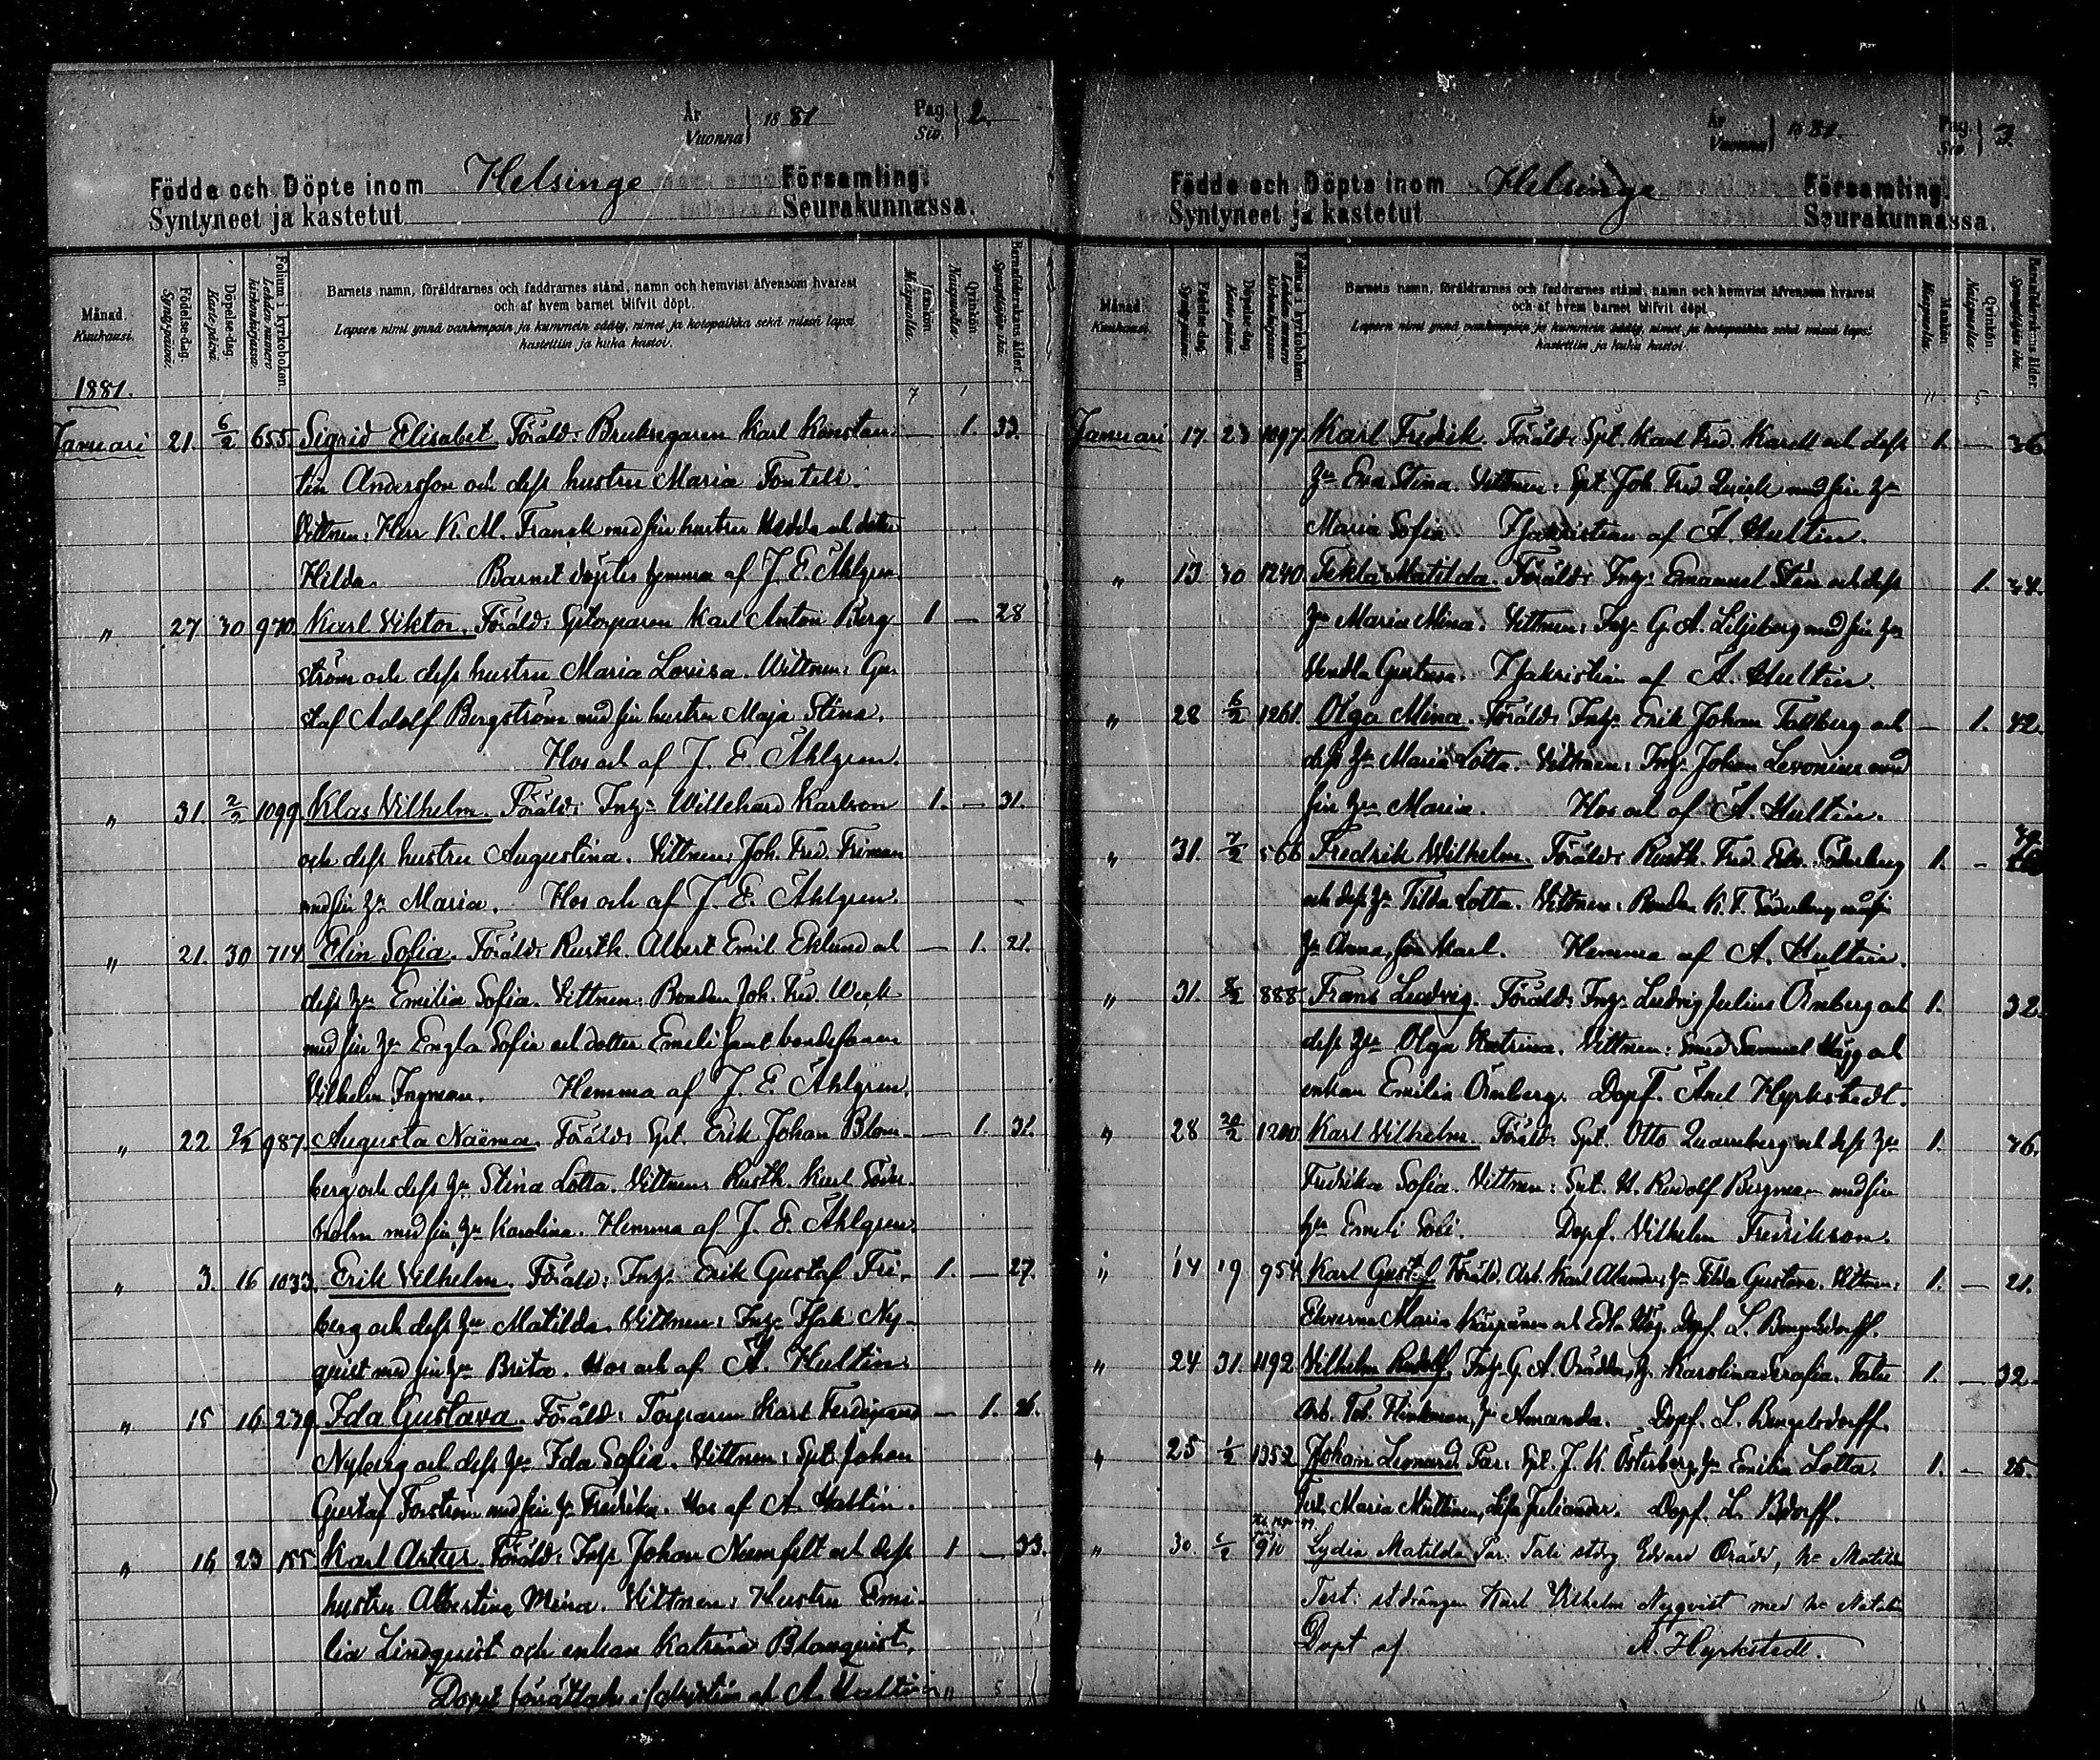 År Vuonna } 1881 Pag. Siv. } 2.
Födde och Döpte inom Helsinge Församling.
Syntyneet ja kastetut Seurakunnassa.
Månad. Kuukausi.
Födelse-dag. Syntypäivä.
Döpelse-dag. Kastepäivä.
Folium i kyrkoboken. Lehden numero kirkonkirjassa.
Barnets namn, föräldrarnes och faddrarnes stånd, namn och hemvist äfvensom hvarest
och af hvem barnet blifvit döpt.
Lapsen nimi ynnä vanhempain ja kummein sääty, nimet ja kotopaikka sekä missä lapsi
kastettiin ja kuka kastoi.
Mankön. Miespuolia.
Qvinkön. Naispuolia.
Barnaföderskans ålder. Synnyttäjän ikä.
1881. 7 1
Januari 21. 6/2 655. Sigrid Elisabet Föräld: Bruksegaren Karl Konstan- — 1. 33.
tin Andersson och dess hustru Maria Fontell.
Vittnen: Herr K. M. Fransk med sin hustru Hedda och dotter
Hilda. Barnet döptes hemma af J. E. Åhlgren.
" 27 30 970. Karl Viktor. Föräld: Sptorparen Karl Anton Berg- 1 — 28
ström och dess hustru Maria Lovisa. Vittnen: Gu-
staf Adolf Bergström med sin hustru Maja Stina.
Hos och af J. E. Åhlgren.
" 31. 2/2 1099 Klas Vilhelm. Föräld: Inhs Willehard Karlson 1. — 31.
och dess hustru Augustina. Vittnen: Joh. Fred. Friman
med sin hu Maria. Hos och af J. E. Åhlgren.
" 21. 30 714 Elin Sofia. Föräld: Rusth. Albert Emil Eklund och — 1. 21.
dess hu Emilia Sofia. Vittnen: Bonden Joh. Fred. Weck
med sin hu Engla Sofia och dotter Emeli samt bondesonen
Vilhelm Ingman. Hemma af J. E. Åhlgren.
" 22 2/2 987. Augusta Naëma. Föräld: Spt. Erik Johan Blom- — 1. 31.
berg och dess hu Stina Lotta. Vittnen: Rusth. Karl Söder-
holm med sin hu Karolina. Hemma af J. E. Åhlgren.
" 3. 16 1033. Erik Vilhelm. Föräld: Inhs Erik Gustaf Fri- 1. — 27.
berg och dess hu Matilda. Vittnen: Inhs Isak Ny-
quist med sin hu Brita. Hos och af A. Hultin.
" 15 16 279. Ida Gustava. Föräld: Torparen Karl Ferdinand — 1. 26.
Nyberg och dess hu Ida Sofia. Vittnen: Spt. Johan
Gustaf Forström med sin hu Fredrika. Hos af A. Hultin.
" 16 23 155. Karl Artur. Föräld: Inhs Johan Nyemfelt och dess 1 — 33.
hustru Albertina Mina. Vittnen: Hustru Emi-
lia Lindquist och enkan Katrina Blomquist.
Dopet förrättades i sakristian af A. Hultin
År Vuonna } 1881. Pag. Siv. } 3.
Födde och Döpte inom Helsinge Församling.
Syntyneet ja kastetut Seurakunnassa.
Månad. Kuukausi.
Födelse-dag. Syntypäivä.
Döpelse-dag. Kastepäivä.
Folium i kyrkoboken. Lehden numero kirkonkirjassa.
Barnets namn, föräldrarnes och faddrarnes stånd, namn och hemvist äfvensom hvarest
och af hvem barnet blifvit döpt.
Lapsen nimi ynnä vanhempain ja kummein sääty, nimet ja kotopaikka sekä missä lapsi
kastettiin ja kuka kastoi.
Mankön. Miespuolia.
Qvinkön. Naispuolia.
Barnaföderskans ålder. Synnyttäjän ikä.
11 5
Januari 17. 23 1097 Karl Fredrik. Föräld: Spt. Karl Fred. Kardt och dess 1. — 36
hu Eva Stina. Vittnen: Spt. Joh. Fred. Quick med sin hu
Maria Sofia. I sakristian af A. Hultin.
" 13 30 1240. Tekla Matilda. Föräld: Inhs Emanuel Stén och dess 1.
hu Maria Mina. Vittnen: Inhs G. A. Liljeberg med sin hu
Vendla Gustava. I sakristian af A. Hultin.
" 28 6/2 1261. Olga Mina. Föräld: Inhs Erik Johan Tallberg och — 1. 42.
dess hu Maria Lotta. Vittnen: Inhs Johan Levonius med
sin hu Maria. Hos och af A. Hultin.
" 31. 7/2 566 Fredrik Wilhelm. Föräld: Rusth. Fred. Edv. Söderberg 1. —
och dess hu Tilda Lotta. Vittnen: Bonden K. F. Söderberg med sin
hu Anna, son Karl. Hemma af A. Hultin.
" 31. 888 Frans Ludvig. Föräld: Inhs Ludvig Julius Örnberg och 1. 32.
dess hu Olga Katrina. Vittnen: Smed Samuel Hägg och
enkan Emilia Örnberg. Dopf. Axel Hyrkstedt.
" 28 20/2 1200 Karl Vilhelm. Föräld: Spt. Otto Quarnberg och dess hu 1. 36.
Fredrika Sofia. Vittnen: Spt. K. Rudolf Bergman med sin
hu Emeli Sofi. Dopf. Vilhelm Fredrikson.
" 14 19 954 Karl Gustaf Föräld. Arb. Karl Alander, hu Tilda Gustava. Vittnen: 1. — 21.
Maria och Edla Dopf. L. Bengelsdorff.
" 24 31. 1192 Vilhelm Rudolf. Inhs G. A. Orädd, hu Karolina Serafia. Test: 1. — 32.
Arb. Tob. Flinkman, hu Amanda. Dopf. L. Bengelsdorff.
" 25 1/2 1352 Johan Leonard. Par: Spt. J. K. Österberg, hu Emilia Lotta. 1. — 25.
Test. Maria Miettinen, Lisa Juliander. Dopf. L. Bdorff.
" 30. 1/2 910 Lydia Matilda Par. Tali stdrg Edvard Orädd, hu Matilda
Test: stdrängen Karl Vilhelm Nyqvist med hu Natalia
Döpt af A. Hyrkstedt.